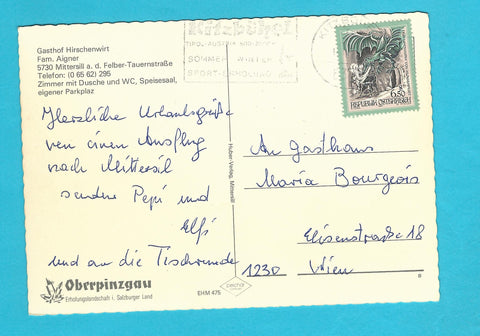 Gasthof Hirschenwirt
Fam. Aigner
5730 Mittersill a. d. Felber-Tauernstraße
Telefon: (0 65 62) 295
Zimmer mit Dusche und WC, Speisesaal,
eigener Parkplaz
Herzliche Urlaubsgrüße
von einem Ausflug
nach Mittersil
senden Pepi und
Elfi
und an die Tischrunde
Oberpinzgau
Erholungslandschaft i. Salzburger Land
EHM 475
Huber-Verlag, Mittersill
Kitzbühel
TIROL-AUSTRIA
SOMMER WINTER
SPORT-ERHOLUNG
6.50
REPUBLIK ÖSTERREICH
An Gasthaus
Maria Bourgeois
Elisenstraße 18
1230 Wien